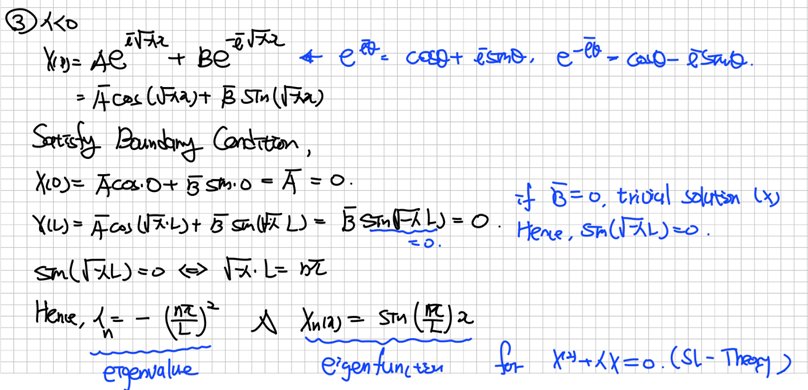 ③ λ<0
X(x) = Ae^{i√-λx} + Be^{-i√-λx} ← e^{iθ} = cosθ + isinθ, e^{-iθ} = cosθ - isinθ.
= A̅ cos(√-λx) + B̅ sin(√-λx)
Satisfy Boundary Condition,
X(0) = A̅cos·0 + B̅ sin·0 = A̅ = 0.
X(L) = A̅cos(√-λ·L) + B̅ sin(√-λ L) = B̅ sin(√-λ L) = 0.
= 0.
if B̅=0, trivial solution (x)
Hence, sin(√-λL)=0.
sin(√-λL)=0 ⇔ √-λ·L = nπ
Hence, λn = -(nπ/L)² ∧ Xn(x) = sin(nπ/L)x
eigenvalue eigenfunction for X⁽²⁾+λX=0. (SL-Theory)